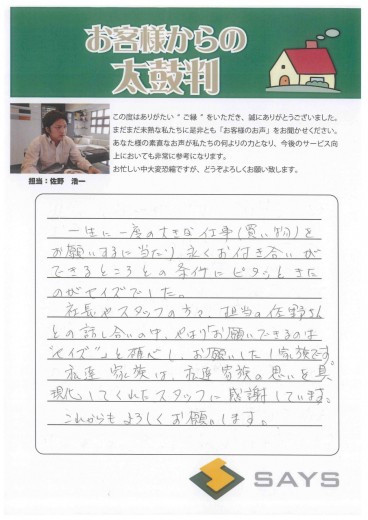 お客様からの
太鼓判
この度はありがたい“ご縁”をいただき、誠にありがとうございました。
まだまだ未熟な私たちに是非とも「お客様のお声」をお聞かせください。
あなた様の素直なお声が私たちの何よりの力となり、今後のサービス向
上においても非常に参考になります。
お忙しい中大変恐縮ですが、どうぞよろしくお願い致します。
担当：佐野　浩一
一生に一度の大きな仕事(買い物)を
お願いするに当たり永くお付き合いが
できるところとの条件にピタッときた
のがセイズでした。
社長やスタッフの方々、担当の佐野さん
との話し合いの中、やはり「お願いできるのは
“セイズ”」と確心し、お願いした1家族です。
私達家族は、私達家族の思いを具
現化してくれたスタッフに感謝しています。
これからもよろしくお願いします。
SAYS